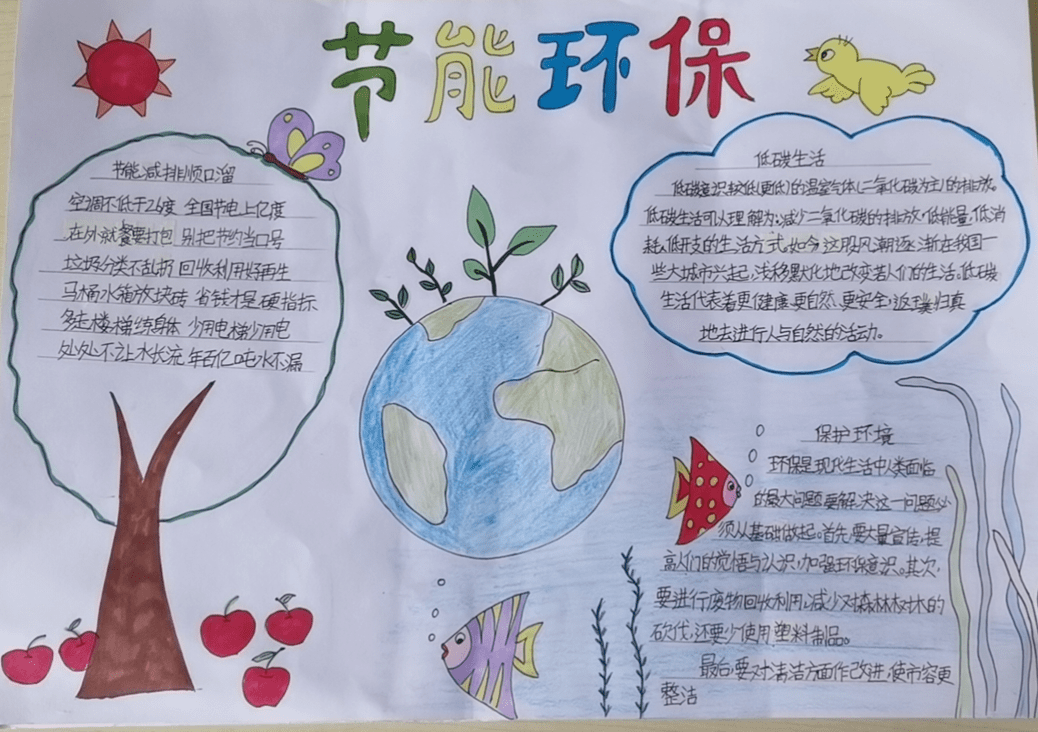 节能环保
节能减排顺口溜
空调不低于26度 全国节电上亿度
在外就餐要打包 别把节约当口号
垃圾分类不乱扔 回收利用好再生
马桶水箱放块砖 省钱才是硬指标
多走楼梯练身体 少用电梯少用电
处处不让水长流 年百亿吨水不漏
低碳生活
低碳意识较低(更低)的温室气体(二氧化碳为主)的排放。
低碳生活可以理解为:减少二氧化碳的排放,低能量,低消
耗,低开支的生活方式,如今,这股风潮逐渐在我国一
些大城市兴起,浅移默化地改变着人们的生活。低碳
生活代表着更健康、更自然、更安全,返璞归真
地去进行人与自然的活动。
保护环境
环保是现代生活中人类面临
的最大问题,要解决这一问题必
须从基础做起。首先,要大量宣传,提
高人们的觉悟与认识,加强环保意识。其次,
要进行废物回收利用,减少对森林树木的
砍伐,还要少使用塑料制品。
最后,要对清洁方面作改进,使市容更
整洁